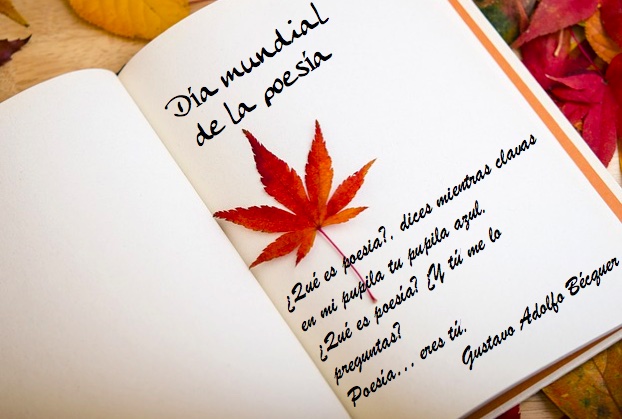 Día mundial
de la poesía
¿Qué es poesia?, dices mientras clavas
en mi pupila tu pupila azul.
¿Qué es poesía? ¿Y tú me lo
preguntas?
Poesía... eres tú.
Gustavo Adolfo Bécquer